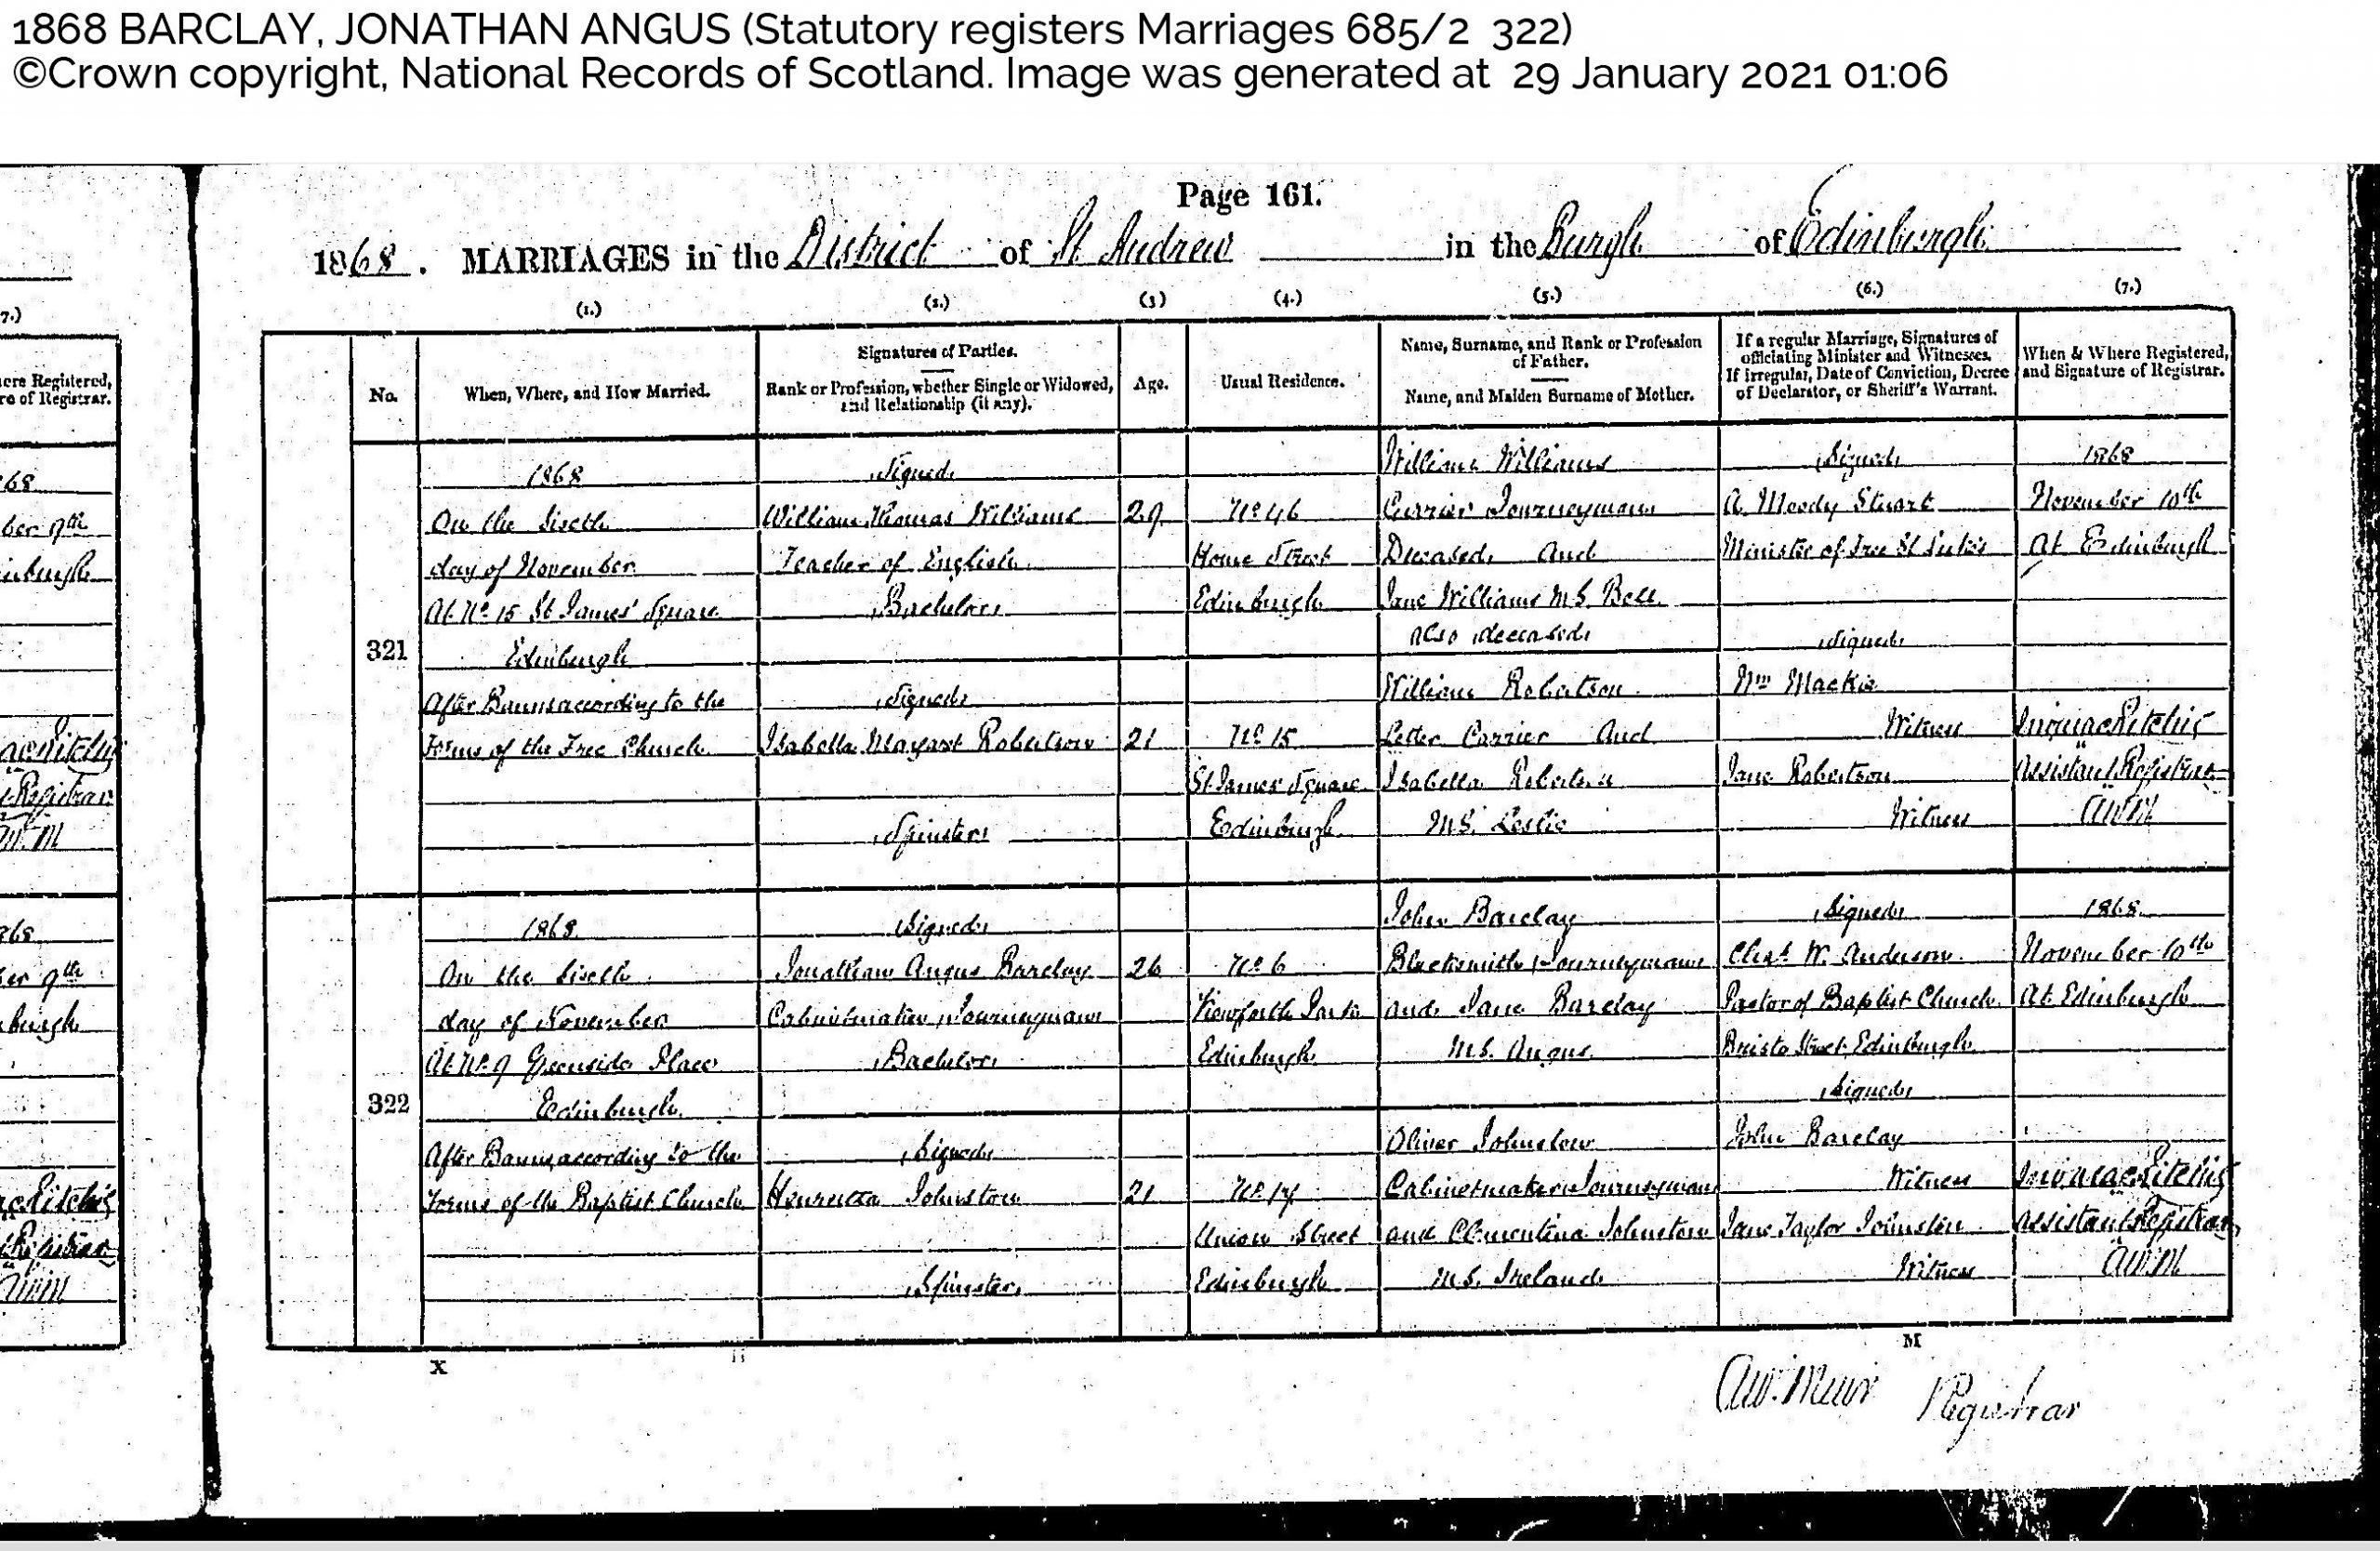 1868 BARCLAY, JONATHAN ANGUS (Statutory registers Marriages 685/2 322)
©Crown copyright, National Records of Scotland. Image was generated at 29 January 2021 01:06
Page 161.
1868. MARRIAGES in the District of St Andrew in the Burgh of Edinburgh
(1.) (2.) (3) (4.) (5.) (6.) (7.)
7.)
ere Registered,
re of Registrar.
No.
When, Where, and How Married.
Signatures of Parties.
Rank or Profession, whether Single or Widowed,
and Relationship (if any).
Age.
Usual Residence.
Name, Surname, and Rank or Profession
of Father.
Name, and Maiden Surname of Mother.
If a regular Marriage, Signatures of
officiating Minister and Witnesses.
If irregular, Date of Conviction, Decree
of Declarator, or Sheriff's Warrant.
When & Where Registered,
and Signature of Registrar.
68
ber 9th
inburgh
321
1868
On the Sixth
day of November
At No 15 St James' Square
Edinburgh
After Banns according to the
Forms of the Free Church
Signed
William Thomas Williams
Teacher of English
Bachelor
Signed
Isabella Margart Robertson
Spinster
29
21
No 46
Home Street
Edinburgh
No 15
St James' Square
Edinburgh
William Williams
Currier Journeyman
Deceased and
Jane Williams M.S. Bell
also deceased
William Robertson
Letter Carrier And
Isabella Robertson
M.S. Leslie
Signed
A. Moody Stuart
Minister of Free St Luke's
Signed
Wm Mackie
Witness
Jane Robertson
Witness
1868
November 10th
At Edinburgh
Assistant Registrar
AWM
868
ber 9th
burgh
322
1868
On the Sixth
day of November
At No 9 Greenside Place
Edinburgh
After Banns according to the
Forms of the Baptist Church
Signed
Jonathan Angus Barclay
Cabinetmaker Journeyman
Bachelor
Signed
Henrietta Johnston
Spinster
26
21
No 6
Viewforth Park
Edinburgh
No 14
Union Street
Edinburgh
John Barclay
Blacksmith Journeyman
and Jane Barclay
M.S. Angus
Oliver Johnston
Cabinetmaker Journeyman
and Clementina Johnston
M.S. Ireland
Signed
Christ W. Anderson
Pastor of Baptist Church
Bristo Street Edinburgh
Signed
John Barclay
Witness
Jane Taylor Johnston
Witness
1868
November 10th
At Edinburgh
Assistant Registrar
AWM
X
M
AW. Muir Registrar